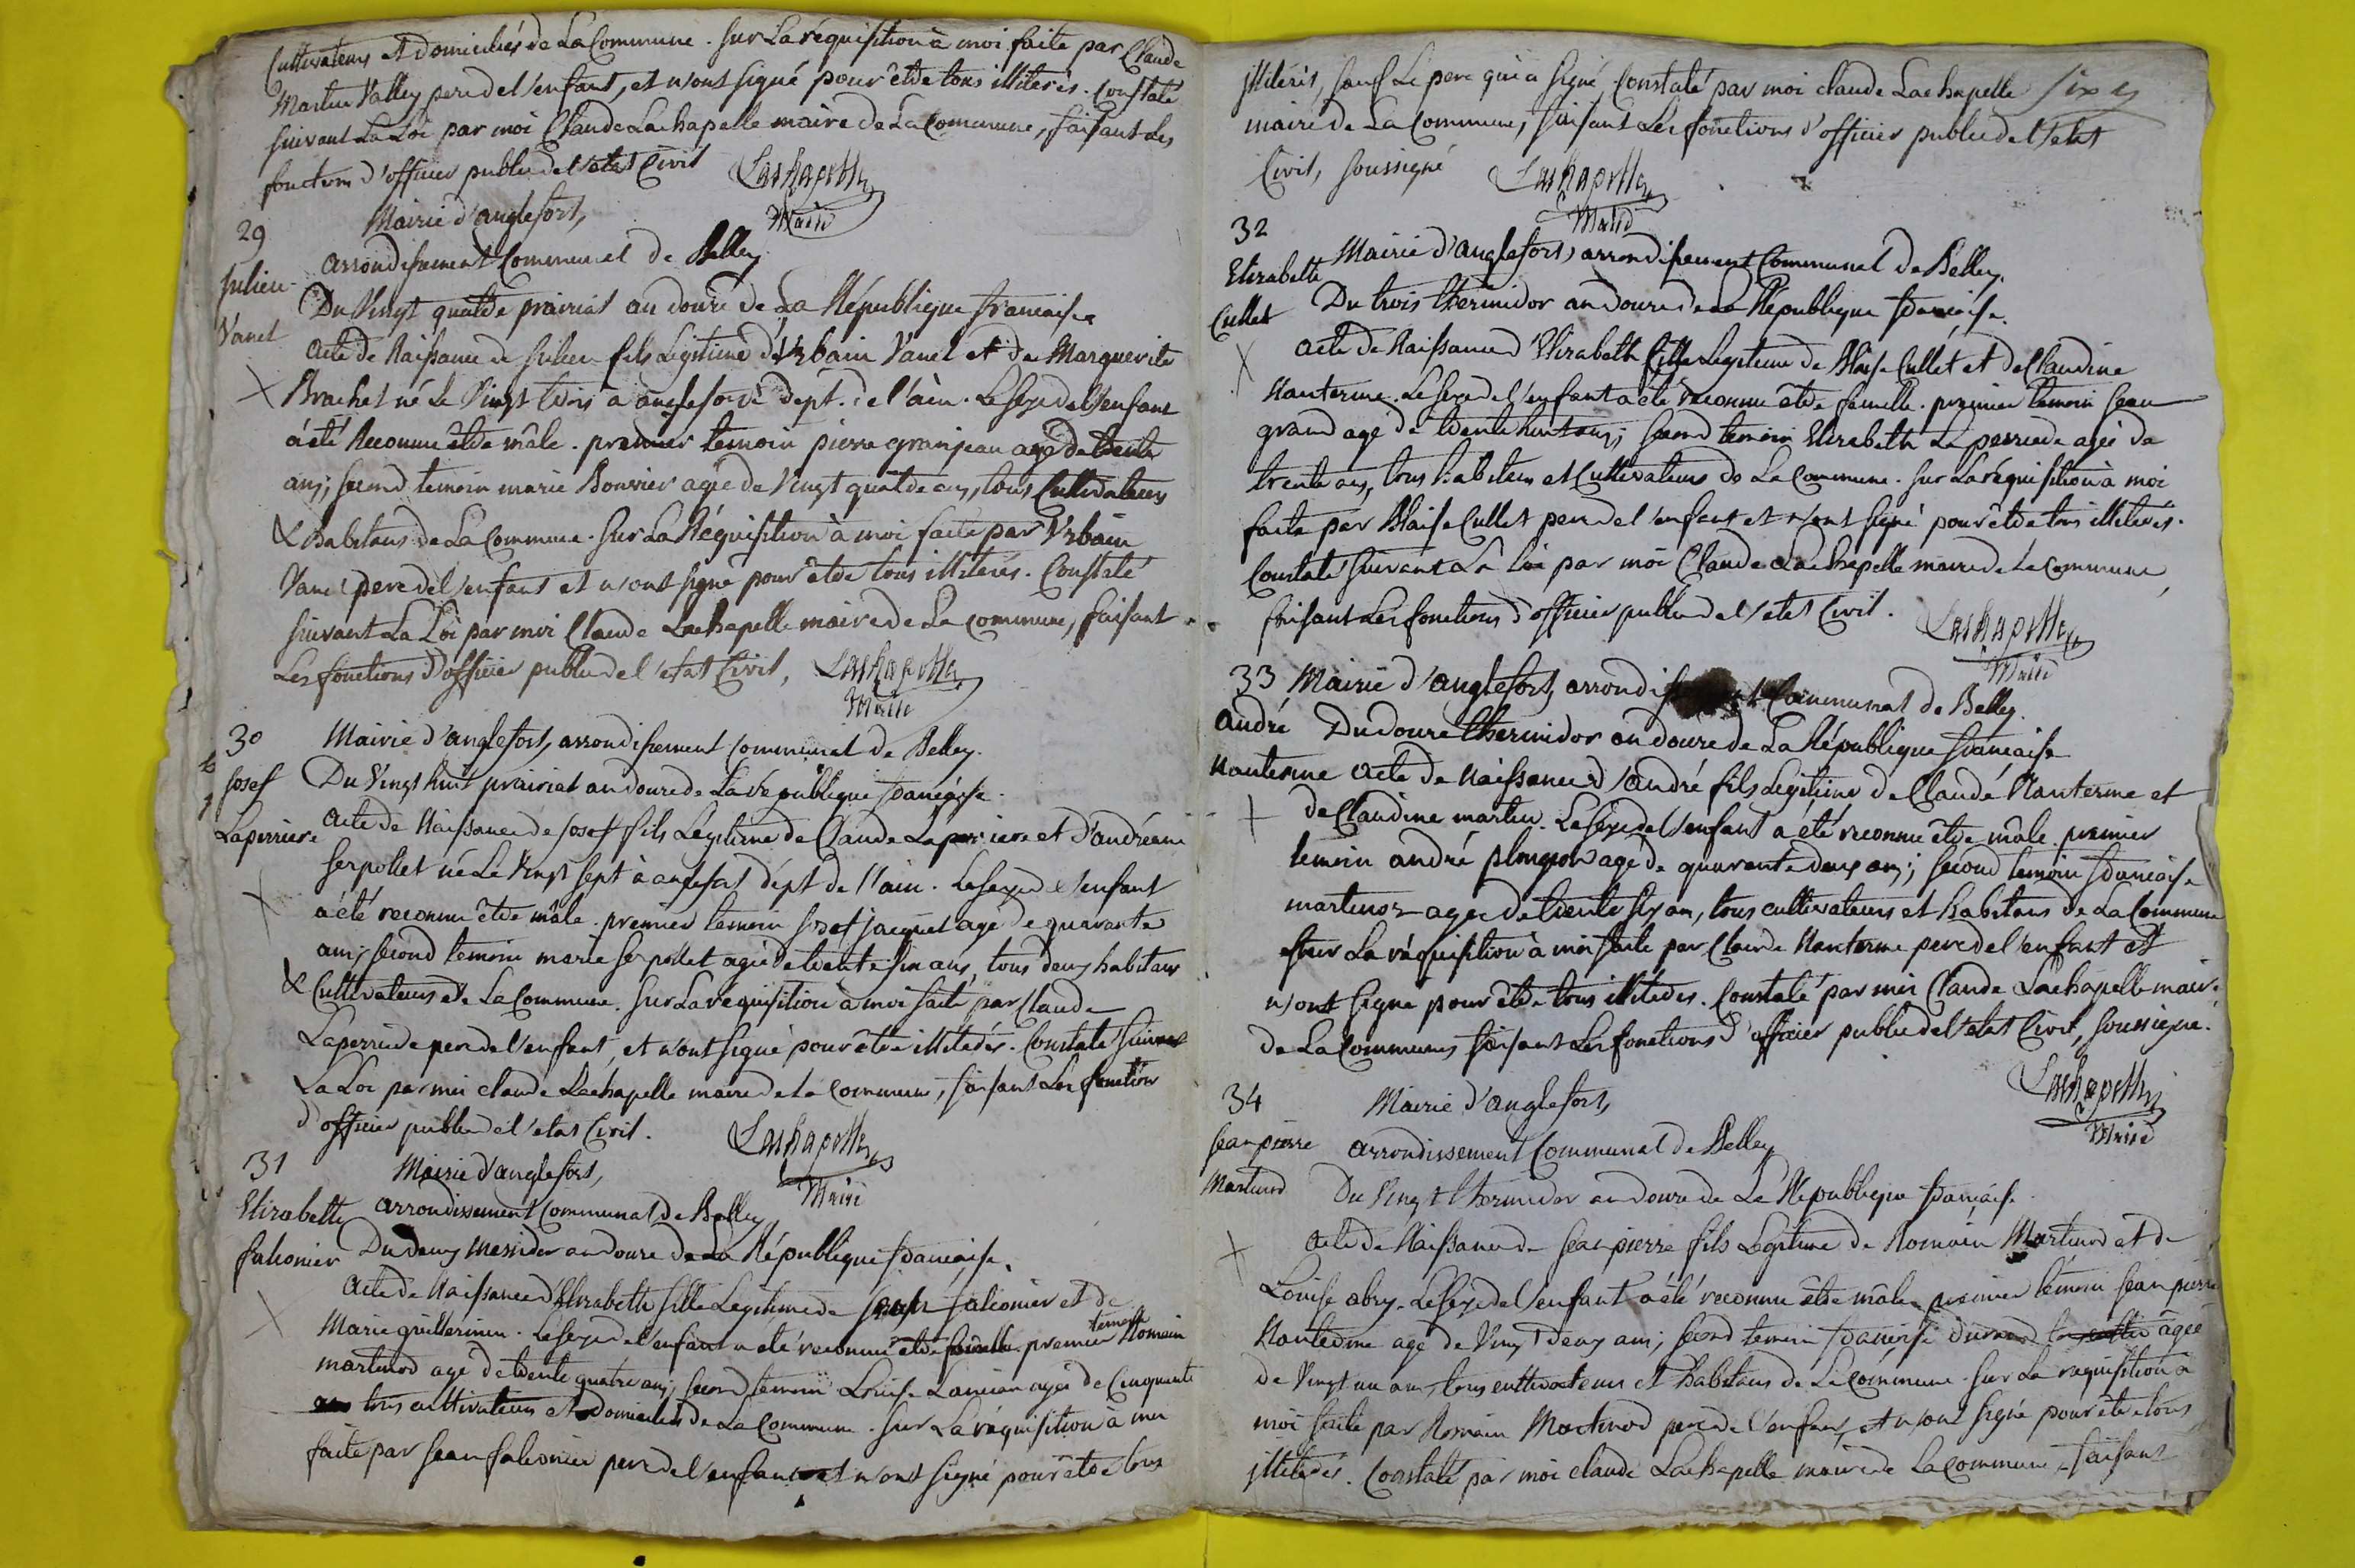 Cultivateurs et Domiciliés de La Commune. sur La réquisition à moi faite par Claude
Martin Valley pere de l'enfant, et n'ont signé pour être tous illiterés. Constaté
suivant La Loi par moi Claude Lachapelle maire de La Commune, faisant Les
fonctions d'officier public de l'etat Civil Lachapelle
Maire
29
Mairie d'anglefort,
arrondissement Communal de Belley
Julien
Vanel
Du Vingt quatre prairial an douze de La République francaise
acte de Naissance de Julien fils Légitime d'Urbain Vanel et de Marguerite
Brachet né Le Vingt trois à anglefort dépt. de l'ain. Le Sexe de l'enfant
à été Reconnu être mâle. premier temoin pierre granjean agé de trente
ans; second temoin marie Bouvier agée de Vingt quatre ans, tous Cultivateurs
& habitans de La Commune. Sur La Réquisition à moi faite par Urbain
Vanel pere de l'enfant et n'ont signé pour être tous illiterés. Constaté
suivant La Loi par moi Claude Lachapelle maire de La Commune, faisant
Les fonctions d'officier public de l'etat Civil, Lachapelle
Maire
30
Mairie d'anglefort, arrondissement Communal de Belley.
Josef
Laperriere
Du Vingt huit prairial an douze de La république francaise.
acte de Naissance de Josef fils Légitime de Claude Laperriere et d'andréane
Serpollet né Le Vingt Sept à anglefort dépt de l'ain. Le Sexe de l'enfant
a été reconnu être mâle. premier temoin Josef jacquet agé de quarante
ans; second temoin marie Serpollet agée de trente six ans, tous deux habitans
& Cultivateurs de La Commune. Sur La réquisition à moi faite par Claude
Laperriere pere de l'enfant, et n'ont signé pour être illiterés. Constaté suivant
La Loi par moi claude Lachapelle maire de La Commune, faisant Les fonction
d'officier public de l'etat Civil. Lachapelle
Maire
31
Mairie d'anglefort,
arrondissement Communal de Belley
Elizabeth
falconier
Du deux Messidor an douze de La République francaise.
Acte de Naissance d'Elizabeth fille Légitime de Jean falconier et de
Marie guillermin. Le sexe de l'enfant a été reconnu être femelle premier temoin Romain
martinod agé de trente quatre ans; second temoin Louise agée de Cinquante
ans tous cultivateurs et Domiciliés de La Commune. Sur La réquisition à moi
faite par Jean falconier pere de l'enfant et n'ont signé pour être tous
illiterés, sauf Le pere qui a signé, Constaté par moi claude Lachapelle
maire de La Commune, faisant Les fonctions d'officier public de l'etat
Civil, soussigné Lachapelle
Maire
32
Mairie d'anglefort, arrondissement Communal de Belley.
Elizabeth
Cullet
Du trois thermidor an douze de La République francaise.
acte de Naissance d'Elizabeth fille Légitime de Blaise Cullet et de Claudine
Nanterme. Le sexe de l'enfant a été reconnu être femelle. premier temoin Jean
grand agé de trente huit ans; second temoin Elizabeth La perriere agée de
trente ans, tous habitans et Cultivateurs de La Commune. Sur La réquisition à moi
faite par Blaise Cullet pere de l'enfant et n'ont signé pour être tous illiterés.
Constaté suivant La Loi par moi Claude Lachapelle maire de La Commune,
faisant Les fonctions d'officier public de l'etat Civil. Lachapelle
Maire
33 Mairie d'anglefort, Communal de Belley.
andré
Nanterme
Du douze thermidor an douze de La République francaise
acte de Naissance d'andré fils Légitime de Claude Nanterme et
de Claudine martin. Le Sexe de l'enfant a été reconnu être mâle. premier
temoin andré plongeon agé de quarante deux ans; second temoin francaise
martinoz agée de trente six ans, tous cultivateurs et habitans de La Commune
Sur La réquisition à moi faite par Claude Nanterme pere de l'enfant et
n'ont signé pour être tous illiterés. Constaté par moi Claude Lachapelle maire
de La Commune, faisant Les fonctions d'officier public de l'etat Civil, soussigné.
Lachapelle
Maire
34
Mairie d'anglefort,
arrondissement Communal de Belley
Jean pierre
Martinod
Du Vingt thermidor an douze de La République francaise.
Acte de Naissance de Jean pierre fils Légitime de Romain Martinod et de
Louise abry. Le sexe de l'enfant a été reconnu être mâle. premier temoin Jean pierre
Nanterme agé de Vingt deux ans; second temoin francaise durand agée
de Vingt un ans, tous cultivateurs et habitans de La Commune. Sur La requisition à
moi faite par Romain Martinod pere de l'enfant, et n'ont signé pour etre tous
illiterés. Constaté par moi claude Lachapelle maire de La Commune, faisant